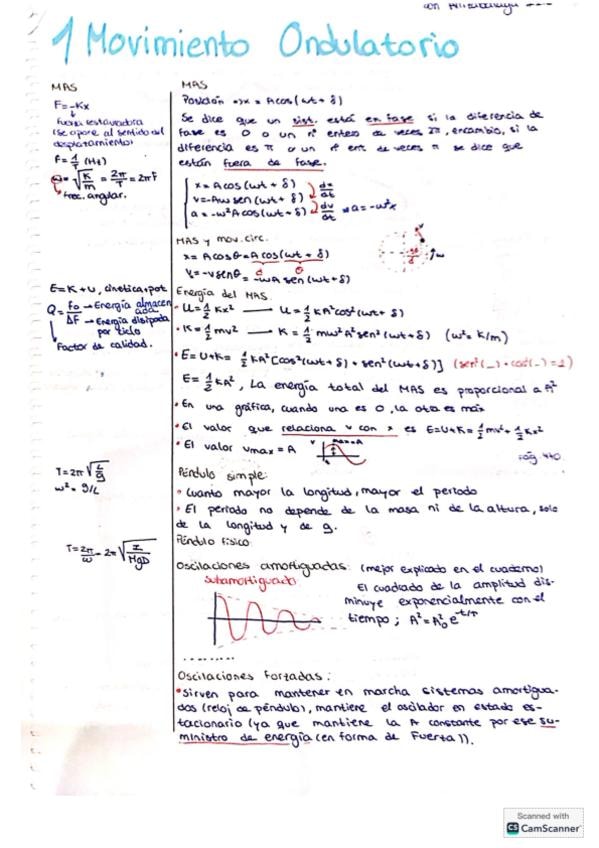 con
1 Movimiento Ondulatorio
MAS
F=-Kx
↓
Fuerza restauradora
(se opone al sentido del
desplazamiento)
F = 1/T (Hz)
ω = √(K/m) = 2π/T = 2πF
Frec. angular.
E=K+U, cinetica+pot
Q = Eo/ΔE → Energía almacenada
→ Energía disipada
por ciclo
Factor de calidad.
T=2π√(L/g)
ω² = g/L
T=2π/ω = 2π√(I/MgD)
MAS
Posición => x = A cos(ωt + δ)
Se dice que un sist. está en fase si la diferencia de
fase es 0 o un nº entero de veces 2π, encambio, si la
diferencia es π o un nº ent. de veces π se dice que
están fuera de fase.
x = A cos (ωt + δ) dx/dt
v=-Aω sen (ωt + δ) dv/dt
a = -ω²A cos (ωt + δ) => a = -ω²x
MAS y mov. circ.
x = A cosθ = A cos (ωt + δ)
V = -v senθ = -ωA sen (ωt + δ)
Energía del MAS
• U = 1/2 Kx² → U = 1/2 KA²cos²(ωt + δ)
• K = 1/2 mv² → K = 1/2 mω²A²sen²(ωt + δ) (ω² = K/m)
• E = U+K = 1/2 KA² [cos²(ωt + δ) + sen²(ωt + δ)] (sen²(_) + cos²(_) = 1)
E = 1/2 KA², La energía total del MAS es proporcional a A²
• En una gráfica, cuando una es 0, la otra es max
• El valor que relaciona v con x es E=U+K = 1/2 mv² + 1/2 Kx²
• El valor vmax = A
v
Pág 440.
Péndulo simple:
• Cuanto mayor la longitud, mayor el periodo
• El periodo no depende de la masa ni de la altura, solo
de la longitud y de g.
Péndulo físico
Oscilaciones amortiguadas: (mejor explicado en el cuaderno)
Subamortiguado
El cuadrado de la amplitud dis-
minuye exponencialmente con el
tiempo; A² = A₀² e^(-t/τ)
.........
Oscilaciones Forzadas:
• Sirven para mantener en marcha sistemas amortigua-
dos (reloj de péndulo), mantiene el oscilador en estado es-
tacionario (ya que mantiene la A constante por ese su-
ministro de energía (en forma de Fuerza)).
Scanned with
CS CamScanner